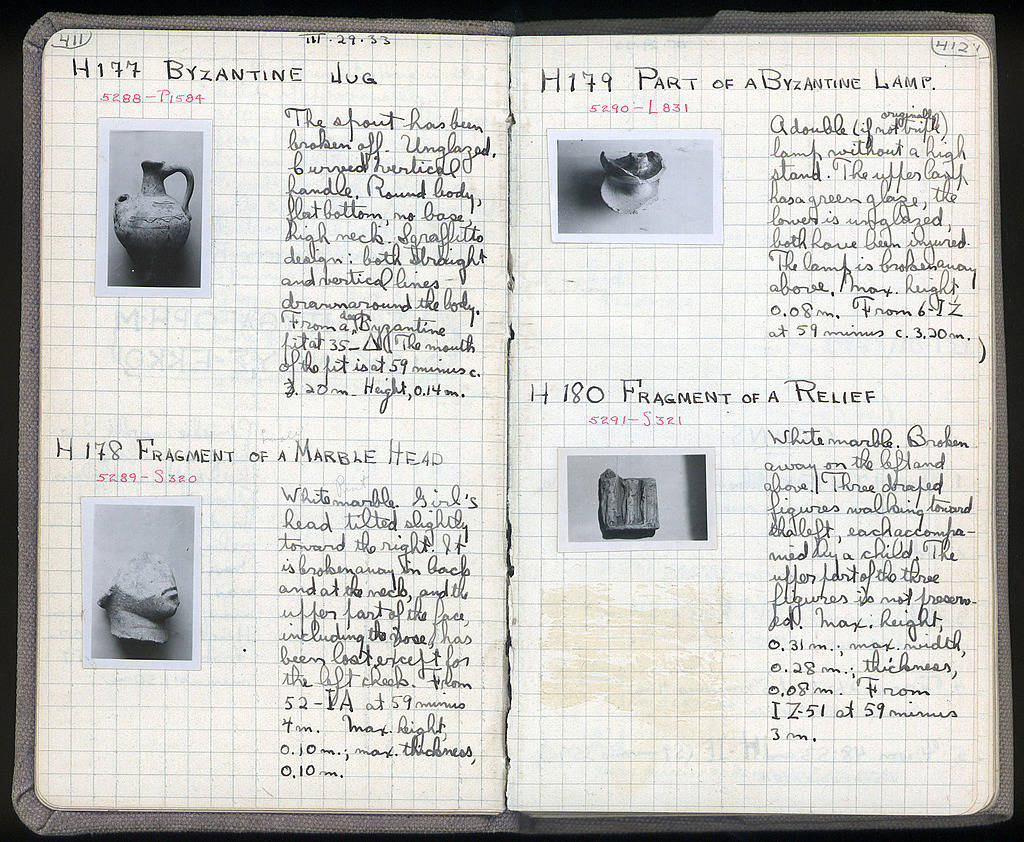 411
III·29·33
H177 BYZANTINE JUG
5288-P1584
The spout has been
broken off. Unglazed.
Curved vertical
handle. Round body,
flat bottom, no base,
high neck. Sgraffito
design: both straight
and vertical lines
drawn around the body.
From a deep Byzantine
pit at 35-Δ (The mouth
of the pit is at 59 minus c.
3.20 m. Height, 0.14 m.
H 178 FRAGMENT OF A MARBLE HEAD
5289-S320
White marble. Girl's
head tilted slightly
toward the right. It
is broken away in back
and at the neck, and the
upper part of the face,
including the nose, has
been lost except for
the left cheek. From
52-IA at 59 minus
4 m. Max. height,
0.10 m.; max. thickness,
0.10 m.
412
H179 PART OF A BYZANTINE LAMP.
5290-L831
originally
A double (if not triple)
lamp without a high
stand. The upper lamp
has a green glaze, the
lower is unglazed,
both have been injured.
The lamp is broken away
above. Max. height
0.08 m. From 6-IZ
at 59 minus c. 3.20 m.
H 180 FRAGMENT OF A RELIEF
5291-S321
White marble. Broken
away on the left and
above. Three draped
figures walking toward
the left, each accompa-
nied by a child. The
upper part of the three
figures is not preserv-
ed. Max. height,
0.31 m.; max. width,
0.28 m.; thickness,
0.08 m. From
IZ-51 at 59 minus
3 m.